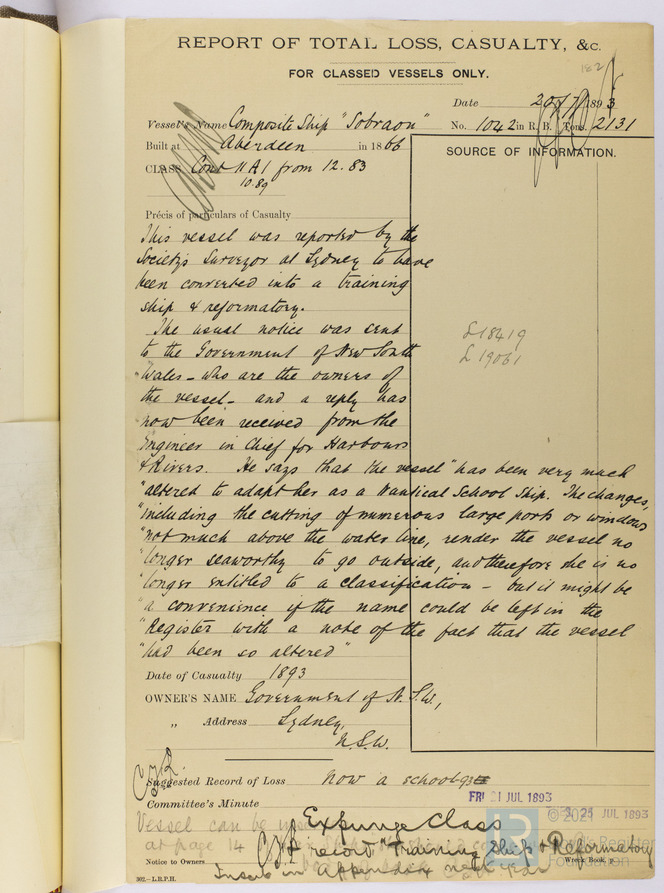 REPORT OF TOTAL LOSS, CASUALTY, &c.
182
FOR CLASSED VESSELS ONLY.
Date 20/7/1893
Vessel's Name Composite Ship "Sobraon" No. 1042 in R. B. Tons 2131
Built at Aberdeen in 1866
SOURCE OF INFORMATION.
CLASS Cont 11 A1 from 12.83
10.89
Précis of particulars of Casualty
This vessel was reported by the
Society's Surveyor at Sydney to have
been converted into a training
ship & reformatory.
The usual notice was sent
£18419
to the Government of New South
£19061
Wales - who are the owners of
the vessel - and a reply has
now been received from the
Engineer in Chief for Harbours
& Rivers. He says that the vessel "has been very much
"altered to adapt her as a Nautical School Ship. The changes,
"including the cutting of numerous large ports or windows
"not much above the water line, render the vessel no
"longer seaworthy to go outside, and therefore she is no
"longer entitled to a classification - but it might be
"a convenience if the name could be left in the
"Register with a note of the fact that the vessel
"had been so altered"
Date of Casualty 1893
OWNER'S NAME Government of N.S.W.,
" Address Sydney,
N.S.W.
Suggested Record of Loss Now a school-93
FRI 21 JUL 1893
Committee's Minute
25 JUL 1893
© 2021
Vessel can be
Expunge Class
at page 14
& record "Training Ship & Reformatory
Lloyd's Register
Foundation
Notice to Owners
Wreck Book, p.
Insert in Appendix next year
302.-L.R.P.H.